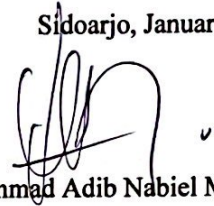 Sidoarjo, Januar
mad Adib Nabiel M